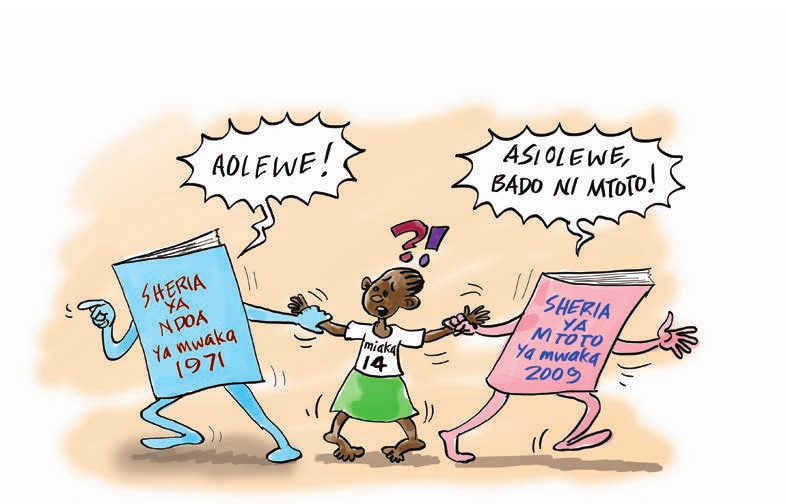 AOLEWE!
ASIOLEWE,
BADO NI MTOTO!
?!
SHERIA
YA
NDOA
Ya mwaka
1971
miaka
14
SHERIA
YA
MTOTO
Ya mwaka
2009